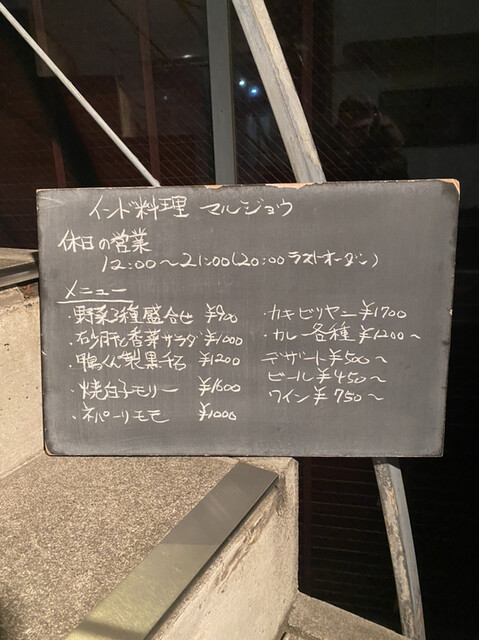 インド料理 マルジョウ
休日の営業
12:00〜21:00(20:00ラストオーダー)
メニュー
・野菜3種盛合せ ¥900
・砂肝と香菜サラダ ¥1000
・鴨くん製黒千石 ¥1200
・焼白子モリー ¥1600
・ネパーリモモ ¥1000
・カキビリヤニ ¥1700
・カレー各種 ¥1200〜
デザート ¥500〜
ビール ¥450〜
ワイン ¥750〜